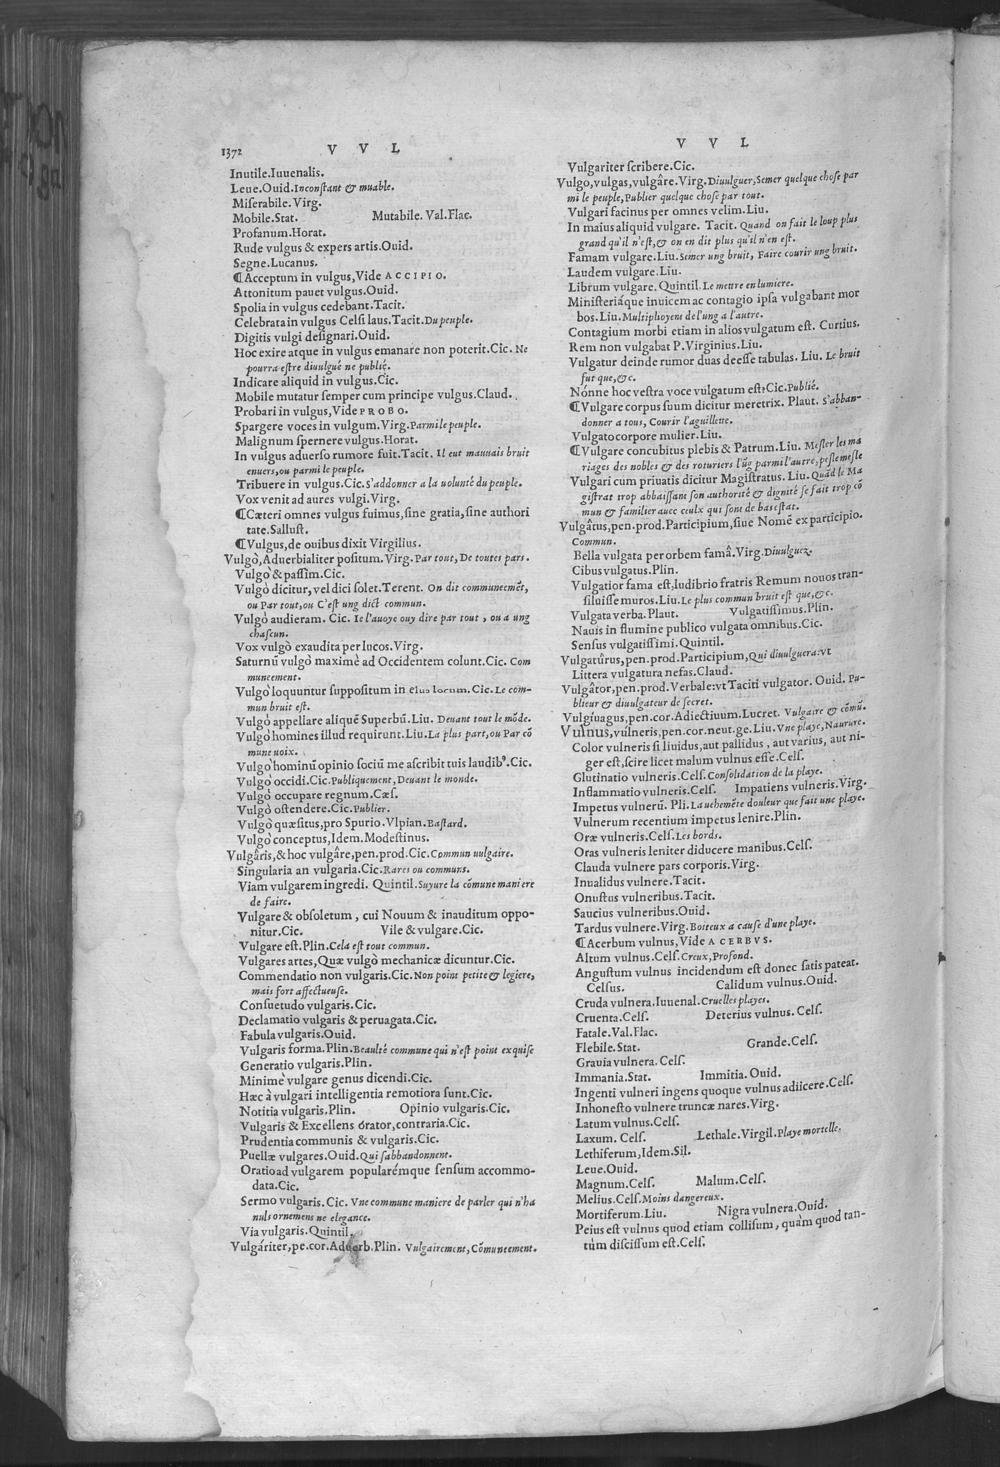 1372 V V L
Inutile.Iuuenalis.
Leue.Ouid.Inconstant & muable.
Miserabile.Virg.
Mobile.Stat. Mutabile.Val.Flac.
Profanum.Horat.
Rude vulgus & expers artis.Ouid.
Segne.Lucanus.
¶Acceptum in vulgus,Vide ACCIPIO.
Attonitum pauet vulgus.Ouid.
Spolia in vulgus cedebant.Tacit.
Celebrata in vulgus Celsi laus.Tacit.Du peuple.
Digitis vulgi designari.Ouid.
Hoc exire atque in vulgus emanare non poterit.Cic. Ne
pourra estre diuulgué ne publié.
Indicare aliquid in vulgus.Cic.
Mobile mutatur semper cum principe vulgus.Claud.
Probari in vulgus,Vide PROBO.
Spargere voces in vulgum.Virg.Parmi le peuple.
Malignum spernere vulgus.Horat.
In vulgus aduerso rumore fuit.Tacit. Il eut mauuais bruit
enuers,ou parmi le peuple.
Tribuere in vulgus.Cic.S'addonner a la uolunté du peuple.
Vox venit ad aures vulgi.Virg.
¶Cæteri omnes vulgus fuimus,sine gratia,sine authori
tate.Sallust.
¶Vulgus,de ouibus dixit Virgilius.
Vulgò,Aduerbialiter positum.Virg.Par tout, De toutes pars.
Vulgò & passim.Cic.
Vulgò dicitur, vel dici solet.Terent. On dit communeemẽt,
ou Par tout,ou C'est ung dict commun.
Vulgò audieram. Cic. Ie l'auoye ouy dire par tout , ou a ung
chascun.
Vox vulgò exaudita per lucos.Virg.
Saturnũ vulgò maximè ad Occidentem colunt.Cic. Com
muneement.
Vulgò loquuntur suppositum in eius locum.Cic.Le com-
mun bruit est.
Vulgò appellare aliquẽ Superbũ.Liu. Deuant tout le mõde.
Vulgò homines illud requirunt.Liu.La plus part,ou Par cõ
mune uoix.
Vulgò hominũ opinio sociũ me ascribit tuis laudibꝰ.Cic.
Vulgò occidi.Cic.Publiquement,Deuant le monde.
Vulgò occupare regnum.Cæs.
Vulgò ostendere.Cic.Publier.
Vulgò quæsitus,pro Spurio.Vlpian.Bastard.
Vulgò conceptus,Idem.Modestinus.
Vulgâris,& hoc vulgâre,pen.prod.Cic.Commun uulgaire.
Singularia an vulgaria.Cic.Rares ou communs.
Viam vulgarem ingredi. Quintil.Suyure la cõmune maniere
de faire.
Vulgare & obsoletum , cui Nouum & inauditum oppo-
nitur.Cic. Vile & vulgare.Cic.
Vulgare est.Plin.Cela est tout commun.
Vulgares artes,Quæ vulgò mechanicæ dicuntur.Cic.
Commendatio non vulgaris.Cic.Non point petite & legiere,
mais fort affectueuse.
Consuetudo vulgaris.Cic.
Declamatio vulgaris & peruagata.Cic.
Fabula vulgaris.Ouid.
Vulgaris forma.Plin.Beaulté commune qui n'est point exquise
Generatio vulgaris.Plin.
Minimè vulgare genus dicendi.Cic.
Hæc à vulgari intelligentia remotiora sunt.Cic.
Notitia vulgaris.Plin. Opinio vulgaris.Cic.
Vulgaris & Excellens orator,contraria.Cic.
Prudentia communis & vulgaris.Cic.
Puellæ vulgares.Ouid.Qui s'abbandonnent.
Oratio ad vulgarem popularémque sensum accommo-
data.Cic.
Sermo vulgaris.Cic. Vne commune maniere de parler qui n'ha
nuls ornemens ne elegance.
Via vulgaris.Quintil.
Vulgáriter,pe.cor.Aduerb.Plin. Vulgairement,Cõmuneement.
V V L
Vulgariter scribere.Cic.
Vulgo,vulgas,vulgâre.Virg.Diuulguer,Semer quelque chose par
mi le peuple,Publier quelque chose par tout.
Vulgari facinus per omnes velim.Liu.
In maius aliquid vulgare. Tacit. Quand on fait le loup plus
grand qu'il n'est,& on en dit plus qu'il n'en est.
Famam vulgare.Liu.Semer ung bruit, Faire courir ung bruit.
Laudem vulgare.Liu.
Librum vulgare.Quintil.Le mettre en lumiere.
Ministeriáque inuicem ac contagio ipsa vulgabant mor
bos.Liu.Multiplioyent de l'ung a l'autre.
Contagium morbi etiam in alios vulgatum est. Curtius.
Rem non vulgabat P.Virginius.Liu.
Vulgatur deinde rumor duas deesse tabulas. Liu. Le bruit
fut que,&c.
Nónne hoc vestra voce vulgatum est?Cic.Publié.
¶Vulgare corpus suum dicitur meretrix. Plaut. S'abban-
donner a tous, Courir l'aguillette.
Vulgato corpore mulier.Liu.
¶Vulgare concubitus plebis & Patrum.Liu. Mesler les ma
riages des nobles & des roturiers l'ũg parmi l'autre,peslemesle
Vulgari cum priuatis dicitur Magistratus. Liu. Quãd le Ma
gistrat trop abbaissant son authorité & dignité se fait trop cõ
mun & familier auec ceulx qui sont de bas estat.
Vulgâtus,pen.prod.Participium,siue Nomẽ ex participio.
Commun.
Bella vulgata per orbem famâ.Virg.Diuulguez.
Cibus vulgatus.Plin.
Vulgatior fama est,ludibrio fratris Remum nouos tran-
siluisse muros.Liu.Le plus commun bruit est que,&c.
Vulgata verba.Plaut. Vulgatissimus.Plin.
Nauis in flumine publico vulgata omnibus.Cic.
Sensus vulgatissimi.Quintil.
Vulgatûrus,pen.prod.Participium,Qui diuulguera:vt
Littera vulgatura nefas.Claud.
Vulgâtor,pen.prod.Verbale:vt Taciti vulgator. Ouid. Pu-
blieur & diuulgateur de secret.
Vulgiuagus,pen.cor.Adiectiuum.Lucret. Vulgaire & cõmũ.
Vulnus,vulneris,pen.cor.neut.ge.Liu.Vne playe,Naurure.
Color vulneris si liuidus,aut pallidus , aut varius, aut ni-
ger est,scire licet malum vulnus esse.Cels.
Glutinatio vulneris.Cels.Consolidation de la playe.
Inflammatio vulneris.Cels. Impatiens vulneris.Virg.
Impetus vulnerũ. Pli.La uehemẽte douleur que fait une playe.
Vulnerum recentium impetus lenire.Plin.
Oræ vulneris.Cels.Les bords.
Oras vulneris leniter diducere manibus.Cels.
Clauda vulnere pars corporis.Virg.
Inualidus vulnere.Tacit.
Onustus vulneribus.Tacit.
Saucius vulneribus.Ouid.
Tardus vulnere.Virg.Boiteux a cause d'une playe.
¶Acerbum vulnus,Vide ACERBVS.
Altum vulnus.Cels.Creux,Profond.
Angustum vulnus incidendum est donec satis pateat.
Celsus. Calidum vulnus.Ouid.
Cruda vulnera.Iuuenal.Cruelles playes.
Cruenta.Cels. Deterius vulnus.Cels.
Fatale.Val.Flac.
Flebile.Stat. Grande.Cels.
Grauia vulnera.Cels.
Immania.Stat. Immitia.Ouid.
Ingenti vulneri ingens quoque vulnus adiicere.Cels.
Inhonesto vulnere truncæ nares.Virg.
Latum vulnus.Cels.
Laxum. Cels. Lethale.Virgil.Playe mortelle.
Lethiferum,Idem.Sil.
Leue.Ouid.
Magnum.Cels. Malum.Cels.
Melius.Cels.Moins dangereux.
Mortiferum.Liu. Nigra vulnera.Ouid.
Peius est vulnus quod etiam collisum, quàm quod tan-
tùm discissum est.Cels.